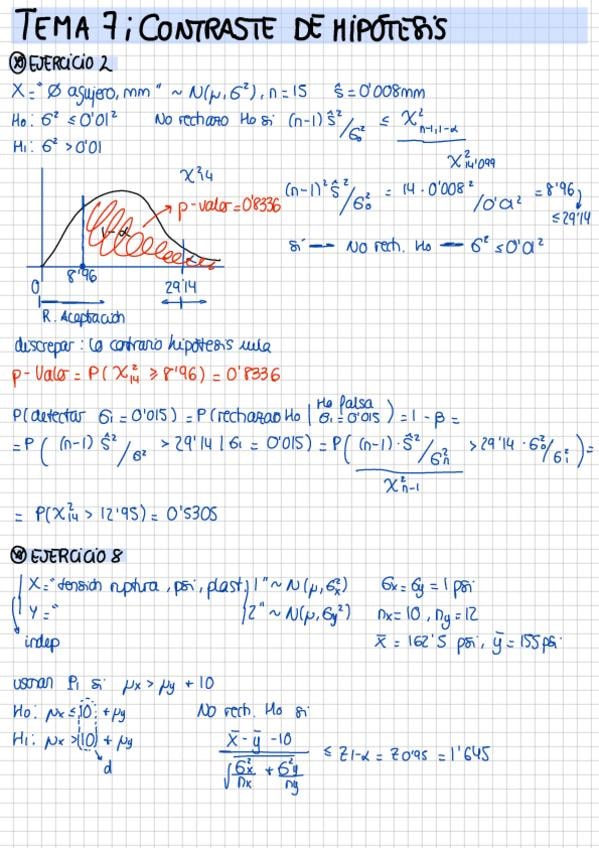 TEMA 7: CONTRASTE DE HIPÓTESIS
EJERCICIO 2
X = "Ø agujero, mm" ~ N(μ, σ²), n = 15 ŝ = 0'008mm
H0: σ² ≤ 0'01² No rechazo H0 si (n-1)ŝ²/σ0² ≤ χ²n-1,1-α
H1: σ² > 0'01 χ²14'099
χ²14
p-valor = 0'8336
1-α
(n-1)²ŝ²/σ0² = 14·0'008²/0'01² = 8'96
≤ 29'14
Si → No rech. H0 — σ² ≤ 0'01²
0 8'96 29'14
R. Aceptación
discrepar: lo contrario hipótesis nula
p-Valor = P(χ²14 ≥ 8'96) = 0'8336
P(detectar σ1 = 0'015) = P(rechazar H0 | H0 falsa σ1 = 0'015) = 1 - β =
= P( (n-1) ŝ²/σ² > 29'14 | σ1 = 0'015) = P( (n-1)·ŝ²/σ²n > 29'14 · σ0²/σ1² ) =
χ²n-1
= P(χ²14 > 12'95) = 0'5305
EJERCICIO 8
X = "tensión ruptura, psi, plast, 1" ~ N(μ, σx²) σx = σy = 1 psi
Y = " 2" ~ N(μ, σy²) nx = 10, ny = 12
indep x̄ = 162'5 psi, ȳ = 155 psi
usarán P1 si μx > μy + 10
H0: μx ≤ 10 + μy No rech. H0 si
H1: μx > 10 + μy
d
x̄ - ȳ - 10 / √(σx²/nx + σ²y/ny) ≤ z1-α = z0'95 = 1'645